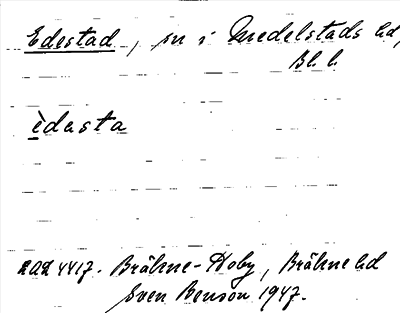 Edestad, sn i Medelstads hd,
Bl. l.
èdasta
4417. Bräkne-Hoby, Bräkne hd
Sven Benson 1947.